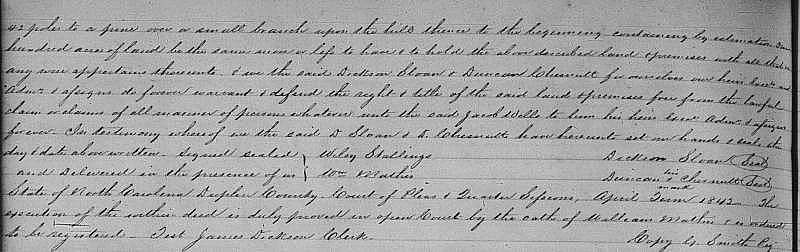 42 poles to a pine over a small branch upon the hill thence to the beginning containing by estimation
hundred acres of land be the same more or less to have & to hold the above described land & premises with all that in
any wise appertains thereunto & we the said Dickson Sloan & Duncan Chesnutt for ourselves our heirs Exors and
Admrs & assigns do forever warrant & defend the right & title of the said land & premises free from the lawful
claim or claims of all manner of persons whatever unto the said Jacob Wells to him his heirs Exors Admrs & assigns
forever In testimony whereof we the said D Sloan & D. Chesnutt have hereunto set our hands & seals the
day & date above written Signed sealed } Wiley Stallings Dickson Sloan (Seal)
and Delivered in the presence of us } Wm Mathis Duncan his mark Chesnutt (Seal)
State of North Carolina Duplin County Court of Pleas & Quarter Sessions, April Term 1842 The
execution of the within deed is duly proved in open Court by the oath of William Mathis & is ordered
to be registered Test James Dickson Clerk. Copy G. Smith Rg